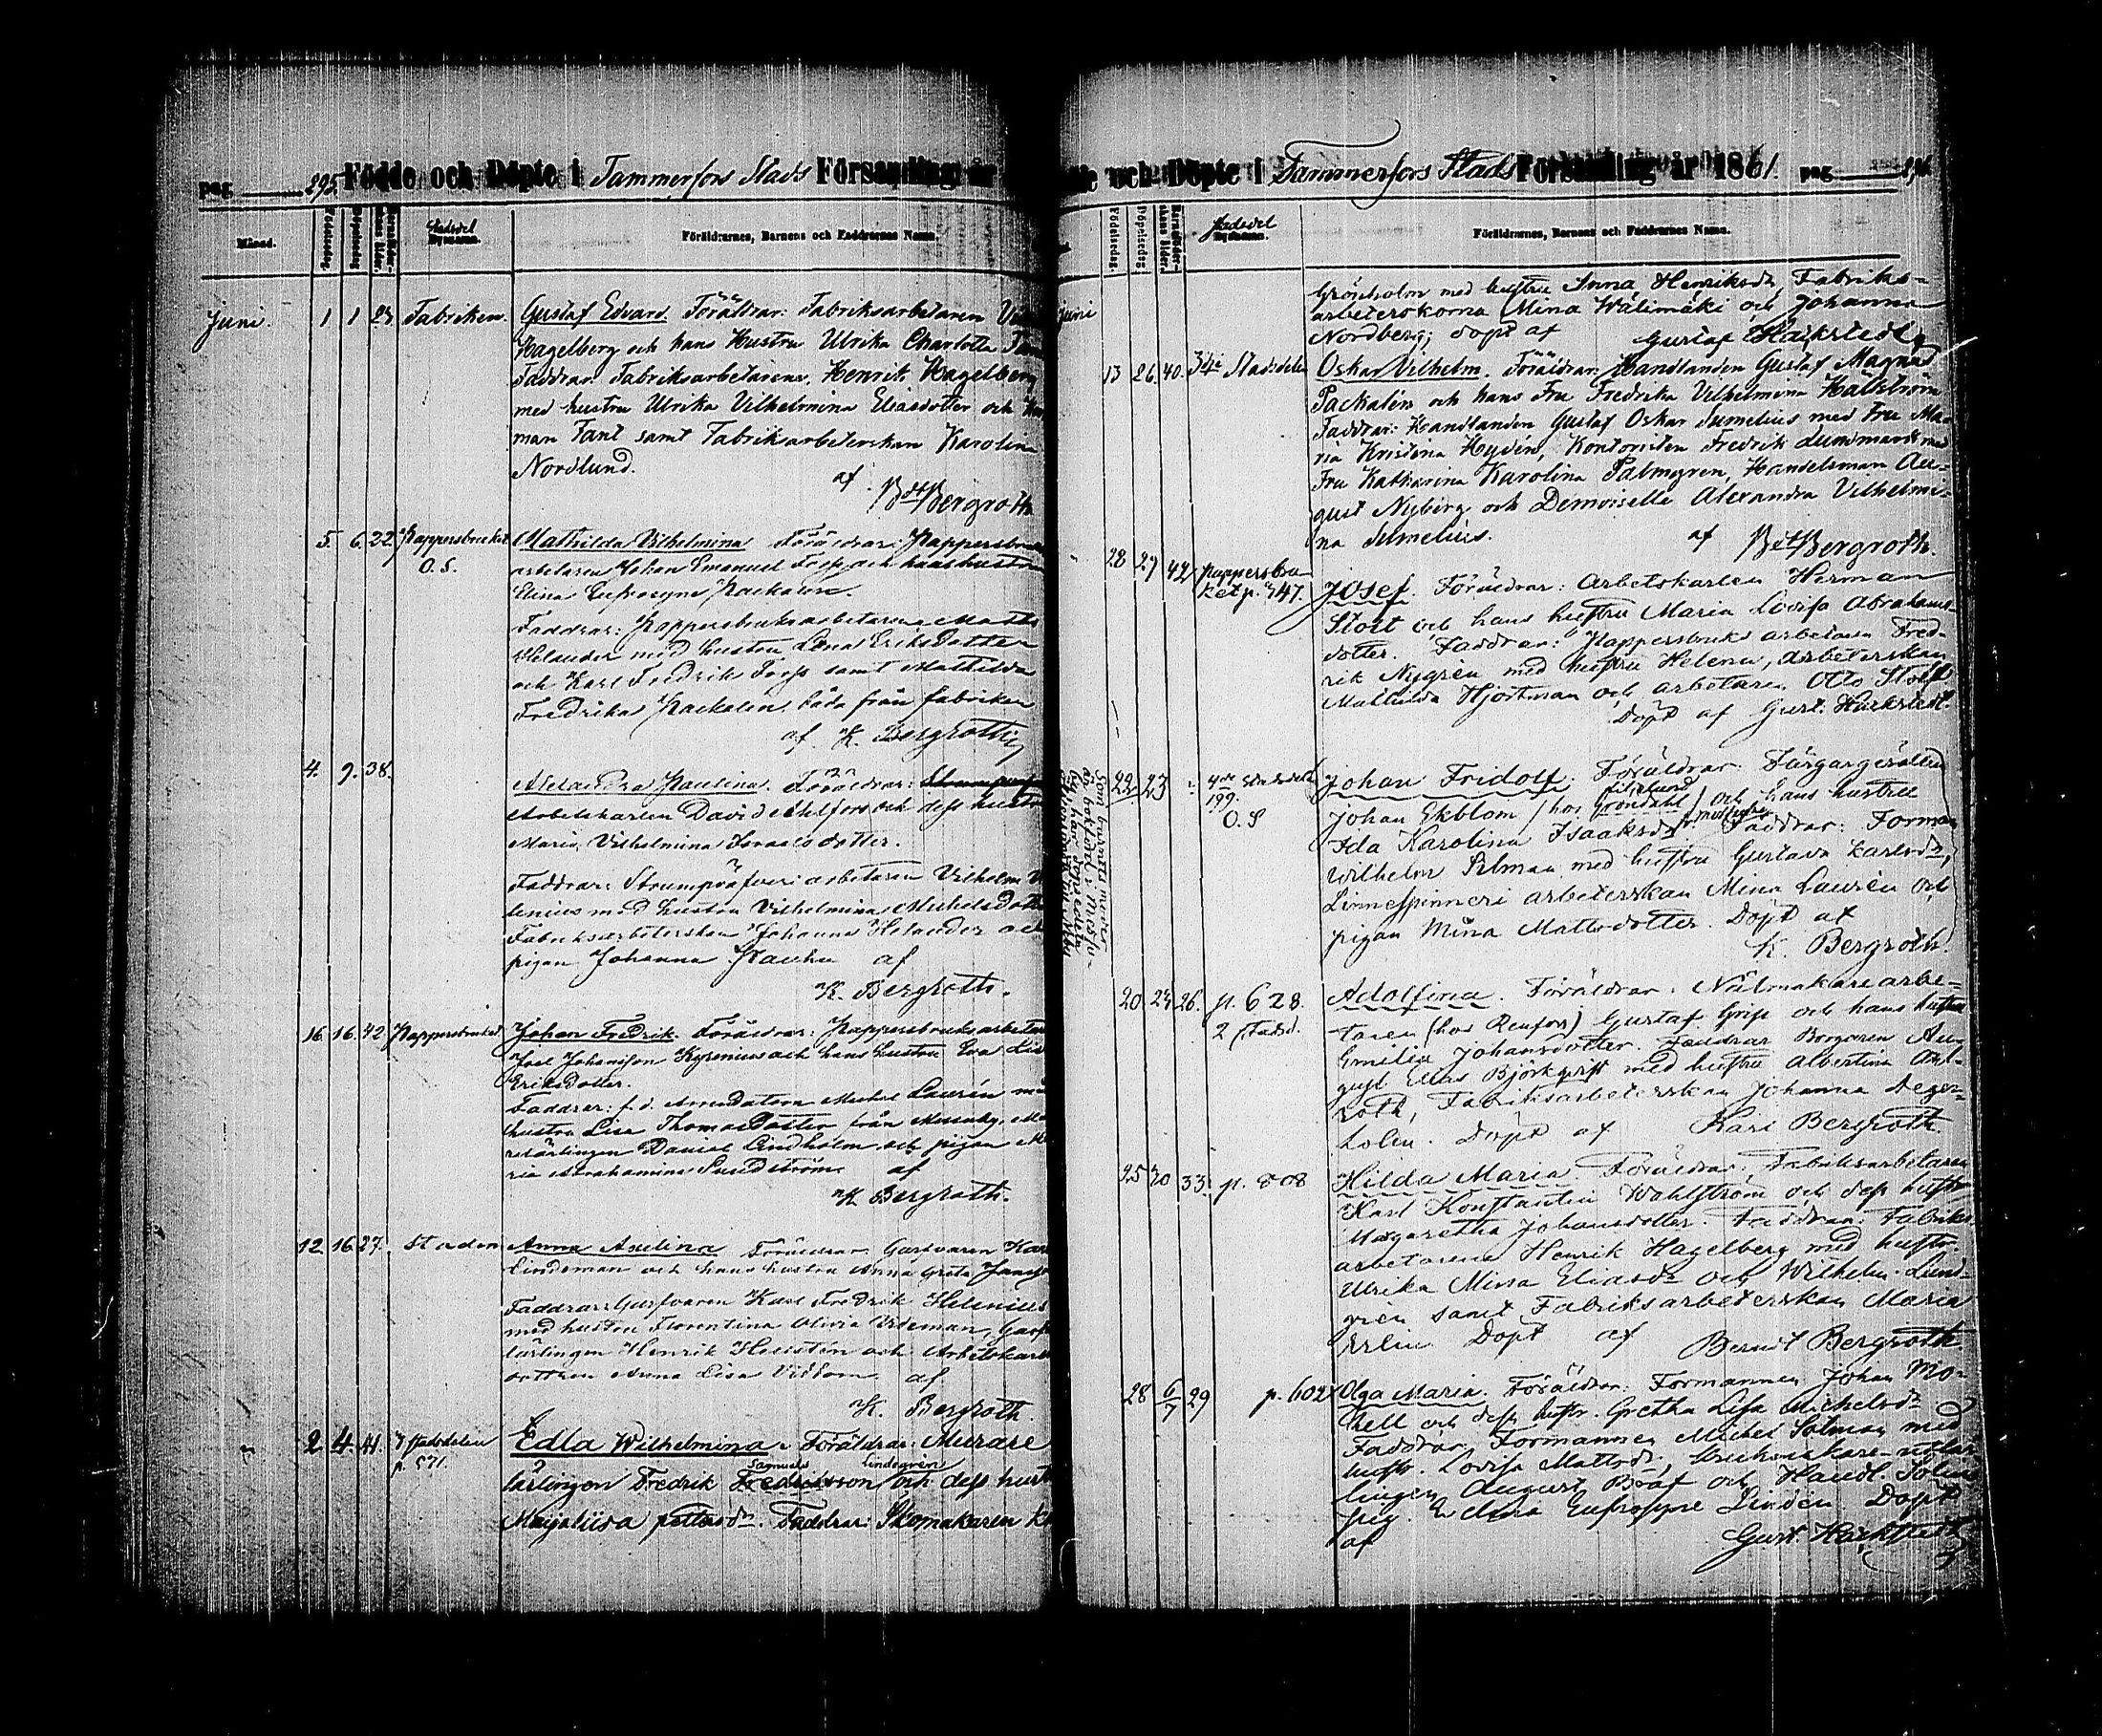 pag. 295. Födde och Döpte i Tammerfors Stads Församling år
Månad. Födelsedag. Döpelsedag. Stadsdel Föräldrarnes, Barnens och Faddrarnes Namn.
Juni. 1 1 Fabriken. Gustaf Edvard. Föräldrar: Fabriksarbetaren
Hagelberg och hans Hustru Ulrika Charlotta
Faddrar: Fabriksarbetarena, Henrik Hagelberg
med hustru Ulrika Vilhelmina Eliasdotter och
man Tant samt Fabriksarbeterskan Karolina
Nordlund. af
Bdt Bergroth
5. 6. 22. Pappersbruket Mathilda Vilhelmina Föräldrar: Pappersbruks
O.S. arbetaren Johan Emanuel Forss och hans hustru
Elina Eufrosyne Packalen.
Faddrar: Pappersbruksarbetarena Matts
Helander med hustru Lena Eriksdotter
och Karl Fredrik Forss samt Mathilda
Fredrika Packalen båda från fabriken
af K. Bergroth
4. 9. 38. Alexandra Paulina. Föräldrar:
Arbetskarlen David Ahlfors och dess hustru
Maria Vilhelmina Israelsdotter.
Faddrar: Strumpväfveriarbetaren Vilhelm
lenius med hustru Vilhelmina Michelsdotter
Fabriksarbeterskan Johanna Helander och
pigan Johanna af
K. Bergroth.
16. 16. 42. Pappersbruket Johan Fredrik. Föräldrar: Pappersbruksarbetaren
Joel Johansson Kyrenius och hans hustru Eva Lisa
Eriksdotter.
Faddrar: f.d. Arrendatorn Michel Laurén med
hustru Lisa Thomasdotter från
lärlingen Daniel Lindholm och pigan Ma
ria Abrahamina Sundström af
K. Bergroth.
12. 16. 27. Staden Anna Axelina Föräldrar Garfvaren Karl
Lindeman och hans hustru Anna Greta
Faddrar: Garfvaren Karl Fredrik Helenius
med hustru Florentina Olivia Lideman, Garf
lärlingen Henrik Hellstén och Arbetskarls
dottren Anna Lisa Vidbom. af
K. Bergroth.
2. 4. 41. stadsdelen Edla Wilhelmina. Föräldrar: Murare
p. 571. Samuels Lindegren
lärlingen Fredrik Fredriksson och dess hustru
Majaliisa pettersdr. Faddrar: Skomakaren
och Döpte i Tammerfors Stads Församling år 1861. pag. 296
Födelsedag. Döpelsedag Stadsdel Föräldrarnes, Barnens och Faddrarnes Namn.
Juni Grönholm med hustru Anna Henriksdr, Fabriks-
arbeterskorna Mina Wälimäki och Johanna
Nordberg; döpt af Gustaf Hackstedt.
13 26. 40. 3dje Stadsdelen Oskar Vilhelm. Föräldrar: Handlanden Gustaf Magnus
Packalén och hans Fru Fredrika Vilhelmina Hällström
Faddrar: Handlanden Gustaf Oskar Sumelius med Fru Ma-
ria Kristina Hydén, Kontoristen Fredrik Lundmark med
Fru Katharina Karolina Palmgren, Handelsman Au-
gust Nyberg och Demoiselle Alexandra Vilhelmi-
na Sumelius. af Bdt Bergroth.
28 27 42 Pappersbru
ket p. 947. Josef. Föräldrar: arbetskarlen Herman
Stolt och hans hustru Maria Lovisa Abrahams-
dotter. Faddrar: Pappersbruks arbetaren Fred-
rik Nygrén med hustru Helena, arbeterskan
Mathilda Hjortman och arbetaren Otto Stolt
Döpt af Gust. Hackstedt.
22 23 4de Stadsdelen Johan Fridolf. Föräldrar: Färgargesällen
199.
O.S Johan Ekblom (hos Gröndahl) och hans hustru
Ida Karolina Isaaksdr. Faddrar: Forman
Wilhelm Silman med hustru Gustava Karlsdr,
Linnespinneri arbeterskan Mina Laurén och
pigan Mina Mattsdotter. Döpt af
K. Bergroth.
20 24 26. p. 628. Adolfina. Föräldrar: Nålmakarearbe-
2 Stadsd. taren (hos Renfors) Gustaf Grip och hans hustru
Emilia Johansdotter. Faddrar Borgaren Au-
gust Elias Björkqvist med hustru Albertina
roth, Fabriksarbeterskan Johanna Deger-
Döpt af Karl Bergroth.
25 30 33. p. 808 Hilda Maria. Föräldrar: Fabriksarbetaren
Karl Konstantin Wahlström och dess hustru
Margaretha Johansdotter. Faddrar: Fabriks
arbetarena Henrik Hagelberg med hustr.
Ulrika Mina Eliasdr och Wilhelm Lund-
grén samt Fabriksarbeterskan Maria
Döpt af Berndt Bergroth
28 6/7 29 p. 602 Olga Maria. Föräldrar: Formannen Johan Mo-
och dess hustr. Gretha Lisa Michelsdr
Faddrar, Formannen Michel Solman med
hustr. Lovisa Mattsdr,
lingen August Bööf och Handl.
Eufrosyne Lindén. Döpt
af Gust. Hackstedt